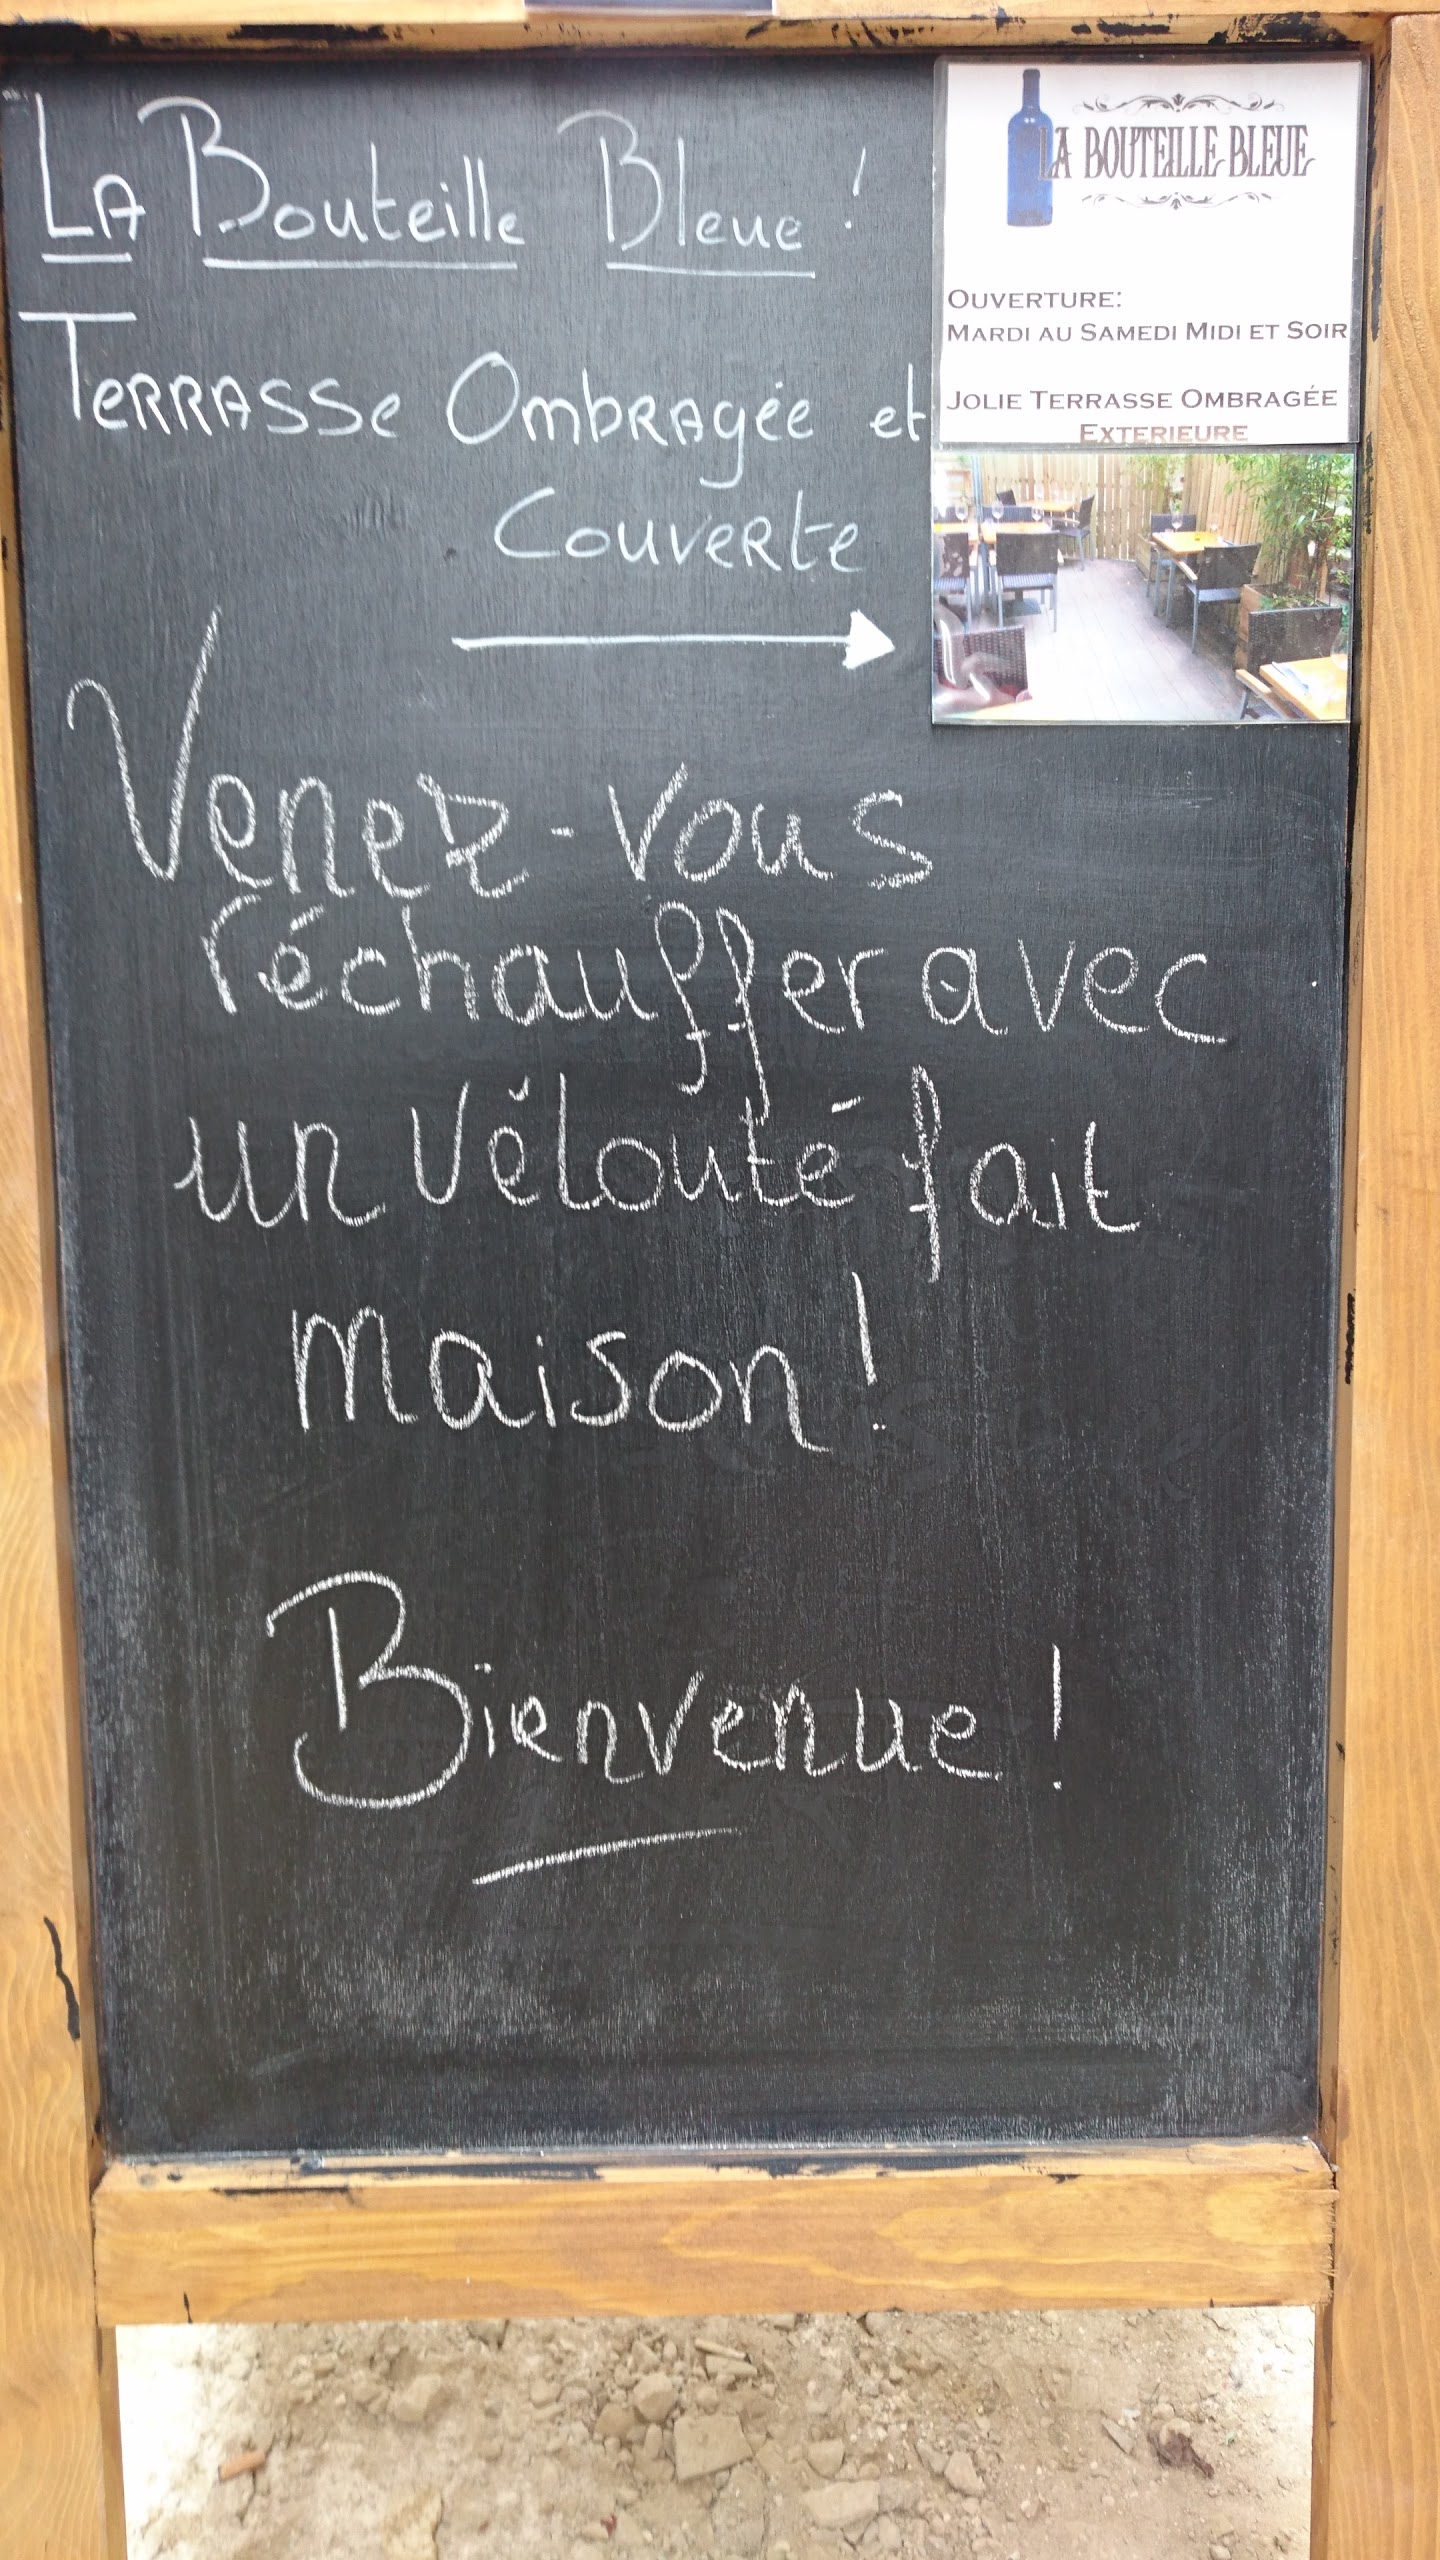 La Bouteille Bleue !
Terrasse Ombragée et
Couverte
LA BOUTEILLE BLEUE
OUVERTURE:
MARDI AU SAMEDI MIDI ET SOIR
JOLIE TERRASSE OMBRAGÉE
EXTERIEURE
Venez-vous
réchauffer avec
un vélouté fait
maison !
Bienvenue !